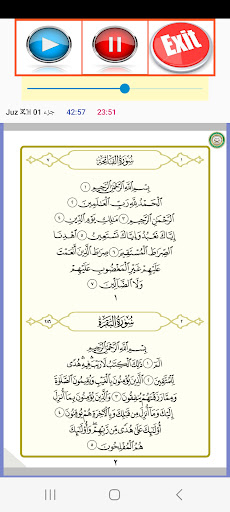 Exit
Juz जुz 01 جزء 42:57 23:51
سورة الفاتحة
بِسْمِ اللَّهِ الرَّحْمَٰنِ الرَّحِيمِ ١
الْحَمْدُ لِلَّهِ رَبِّ الْعَالَمِينَ ٢
الرَّحْمَٰنِ الرَّحِيمِ ٣ مَالِكِ يَوْمِ الدِّينِ ٤
إِيَّاكَ نَعْبُدُ وَإِيَّاكَ نَسْتَعِينُ ٥ اهْدِنَا
الصِّرَاطَ الْمُسْتَقِيمَ ٦ صِرَاطَ الَّذِينَ أَنْعَمْتَ
عَلَيْهِمْ غَيْرِ الْمَغْضُوبِ عَلَيْهِمْ
وَلَا الضَّالِّينَ ٧
١
سورة البقرة
بِسْمِ اللَّهِ الرَّحْمَٰنِ الرَّحِيمِ
الم ١ ذَٰلِكَ الْكِتَابُ لَا رَيْبَ فِيهِ هُدًى
لِلْمُتَّقِينَ ٢ الَّذِينَ يُؤْمِنُونَ بِالْغَيْبِ وَيُقِيمُونَ الصَّلَاةَ
وَمِمَّا رَزَقْنَاهُمْ يُنْفِقُونَ ٣ وَالَّذِينَ يُؤْمِنُونَ بِمَا أُنْزِلَ
إِلَيْكَ وَمَا أُنْزِلَ مِنْ قَبْلِكَ وَبِالْآخِرَةِ هُمْ يُوقِنُونَ ٤
أُولَٰئِكَ عَلَىٰ هُدًى مِنْ رَبِّهِمْ وَأُولَٰئِكَ
هُمُ الْمُفْلِحُونَ ٥
٢